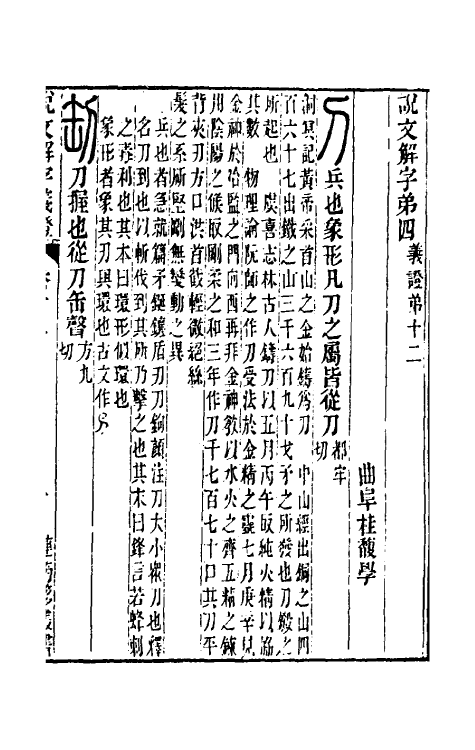 說文解字弟四 義證弟十二
曲阜桂馥學
刀 兵也象形凡刀之屬皆從刀 都牢切
洞冥記黃帝采首山之金始鑄爲刀 中山經出銅之山四
百六十七出鐵之山三千六百九十戈矛之所發也刀鍛之
所起也 虞喜志林古人鑄刀以五月丙午取純火精以協
其數 物理論阮師之作刀受法於金精之靈七月庚辛見
金神於冶監之門向西再拜金神敎以水火之齊五精之鍊
用陰陽之候取剛柔之和三年作刀千七百七十口其刀平
背夾刃方口洪首截輕微絕絲
髮之系斫堅剛無變動之異
兵也者急就篇矛鋋鑲盾刃刀鉤顏注刀大小衆刀也釋
名刀到也以斬伐到其所乃擊之也其末曰鋒言若蜂刺
之毒利也其本曰環形似環也
象形者象其刃與環也古文作
刀握也從刀缶聲 方九切
說文解字義證
連筠簃叢書